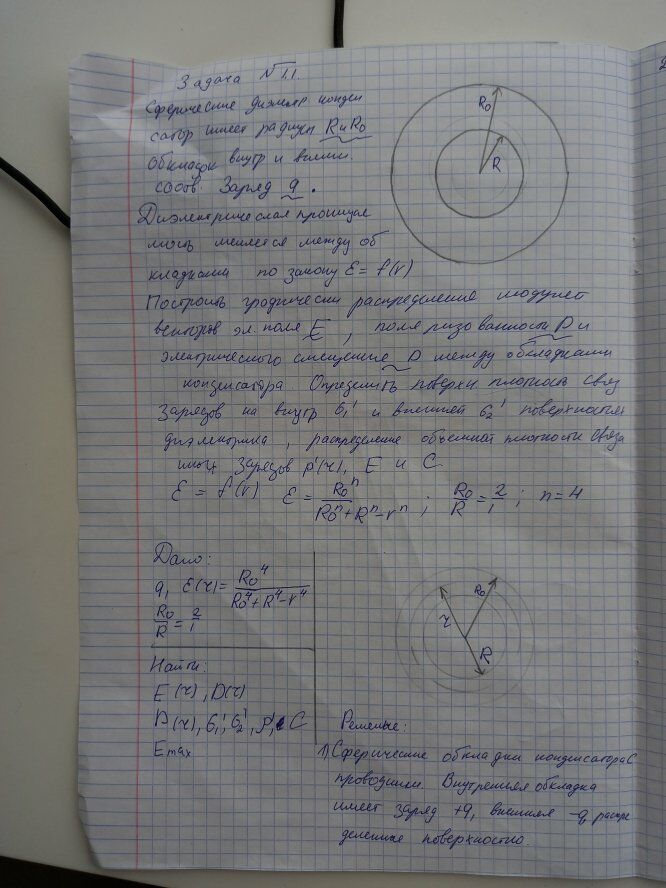 Задача №1.1
Сферический диэлектр конден
сатор имеет радиусы R и R₀
обкладок внутр и внешн.
соотв. Заряд q.
R₀
R
Диэлектрическая проницае
мость меняется между об
кладками по закону ε = f(r)
Построить графически распределение модулей
векторов эл. поля E, поляризованности P и
электрического смещения D между обкладками
конденсатора. Определить поверхн плотность связ
зарядов на внутр σ₁' и внешней σ₂' поверхностях
диэлектрика, распределение объемной плотности связа
зарядов ρ'(r), E и C
ε = f(r) ε = R₀ⁿ/(R₀ⁿ+Rⁿ-rⁿ) ; R₀/R = 2/1 ; n = 4
Дано:
q, ε(r) = R₀⁴/(R₀⁴+R⁴-r⁴)
R₀/R = 2/1
Найти:
E(r), D(r)
P(r), σ₁', σ₂', ρ', C
Emax
r
R₀
R
Решение:
1) Сферические обкладки конденсатора
проводники. Внутренняя обкладка
имеет заряд +q, внешняя -q, распре
деленные поверхностно.